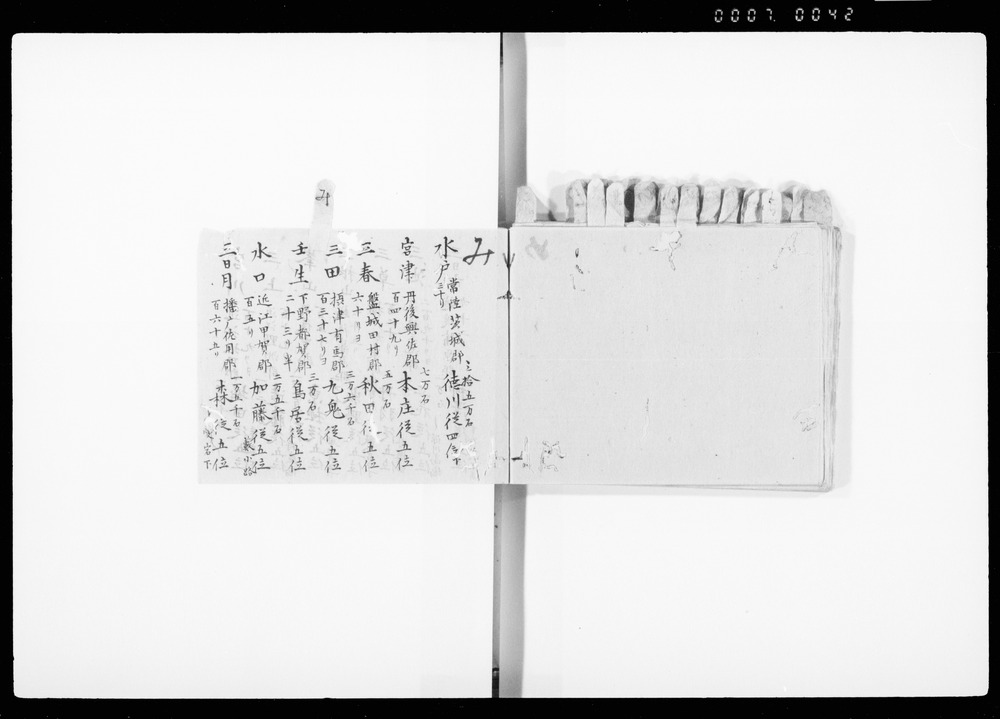 0007. 0042
み
み
水戸 常陸茨城郡 三十り 三拾五万石 徳川従四位下
宮津 丹後與佐郡 百四十九り 七万石 本庄従五位
三春 盤城田村郡 六十りヨ 五万石 秋田従五位
三田 摂津有馬郡 百三十七りヨ 三万六千石 九鬼従五位
壬生 下野都賀郡 二十三り半 三万石 鳥居従五位
水口 近江甲賀郡 百五り 二万五千石 加藤従五位
三日月 播户佐用郡 百六十五り 一万五千石 森従五位